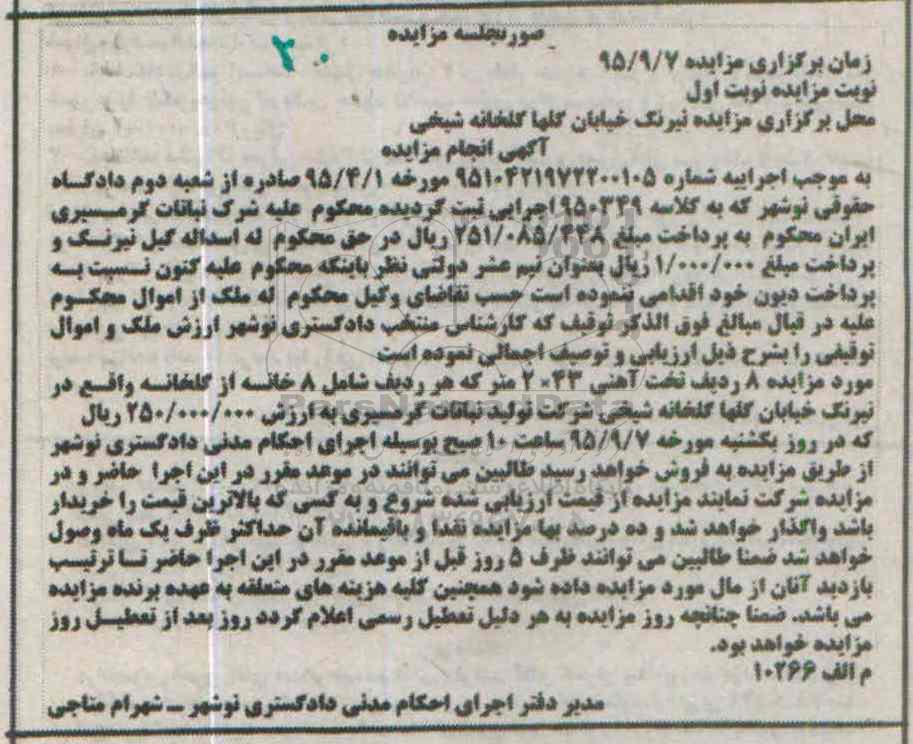 صورتجلسه مزایده
۲۰
زمان برگزاری مزایده ۹۵/۹/۷
نوبت مزایده نوبت اول
محل برگزاری مزایده نیرنگ خیابان گلها گلخانه شیخی
آگهی انجام مزایده
به موجب اجراییه شماره ۹۵۱۰۴۲۱۹۷۲۲۰۰۱۰۵ مورخه ۹۵/۴/۱ صادره از شعبه دوم دادگاه
حقوقی نوشهر که به کلاسه ۹۵۰۳۴۹ اجرایی ثبت گردیده محکوم علیه شرک نباتات گرمسیری
ایران محکوم به پرداخت مبلغ ۲۵۱/۰۸۵/۴۴۸ ریال در حق محکوم له اسداله گیل نیرنگ و
پرداخت مبلغ ۱/۰۰۰/۰۰۰ ریال بعنوان نیم عشر دولتی نظر باینکه محکوم علیه کنون نسبت به
پرداخت دیون خود اقدامی ننموده است حسب تقاضای وکیل محکوم له ملک از اموال محکوم
علیه در قبال مبالغ فوق الذکر توقیف که کارشناس منتخب دادگستری نوشهر ارزش ملک و اموال
توقیفی را بشرح ذیل ارزیابی و توصیف اجمالی نموده است
مورد مزایده ۸ ردیف تخت آهنی ۴۳×۲ متر که هر ردیف شامل ۸ خانه از گلخانه واقع در
نیرنگ خیابان گلها گلخانه شیخی شرکت تولید نباتات گرمسیری به ارزش ۲۵۰/۰۰۰/۰۰۰ ریال
که در روز یکشنبه مورخه ۹۵/۹/۷ ساعت ۱۰ صبح بوسیله اجرای احکام مدنی دادگستری نوشهر
از طریق مزایده به فروش خواهد رسید طالبین می توانند در موعد مقرر در این اجرا حاضر و در
مزایده شرکت نمایند مزایده از قیمت ارزیابی شده شروع و به کسی که بالاترین قیمت را خریدار
باشد واگذار خواهد شد و ده درصد بها مزایده نقدا و باقیمانده آن حداکثر ظرف یک ماه وصول
خواهد شد ضمنا طالبین می توانند ظرف ۵ روز قبل از موعد مقرر در این اجرا حاضر تا ترتیب
بازدید آنان از مال مورد مزایده داده شود همچنین کلیه هزینه های متعلقه به عهده برنده مزایده
می باشد. ضمنا چنانچه روز مزایده به هر دلیل تعطیل رسمی اعلام گردد روز بعد از تعطیل روز
مزایده خواهد بود.
م الف ۱۰۲۶۶
مدیر دفتر اجرای احکام مدنی دادگستری نوشهر – شهرام متاجی
ParsNamadData